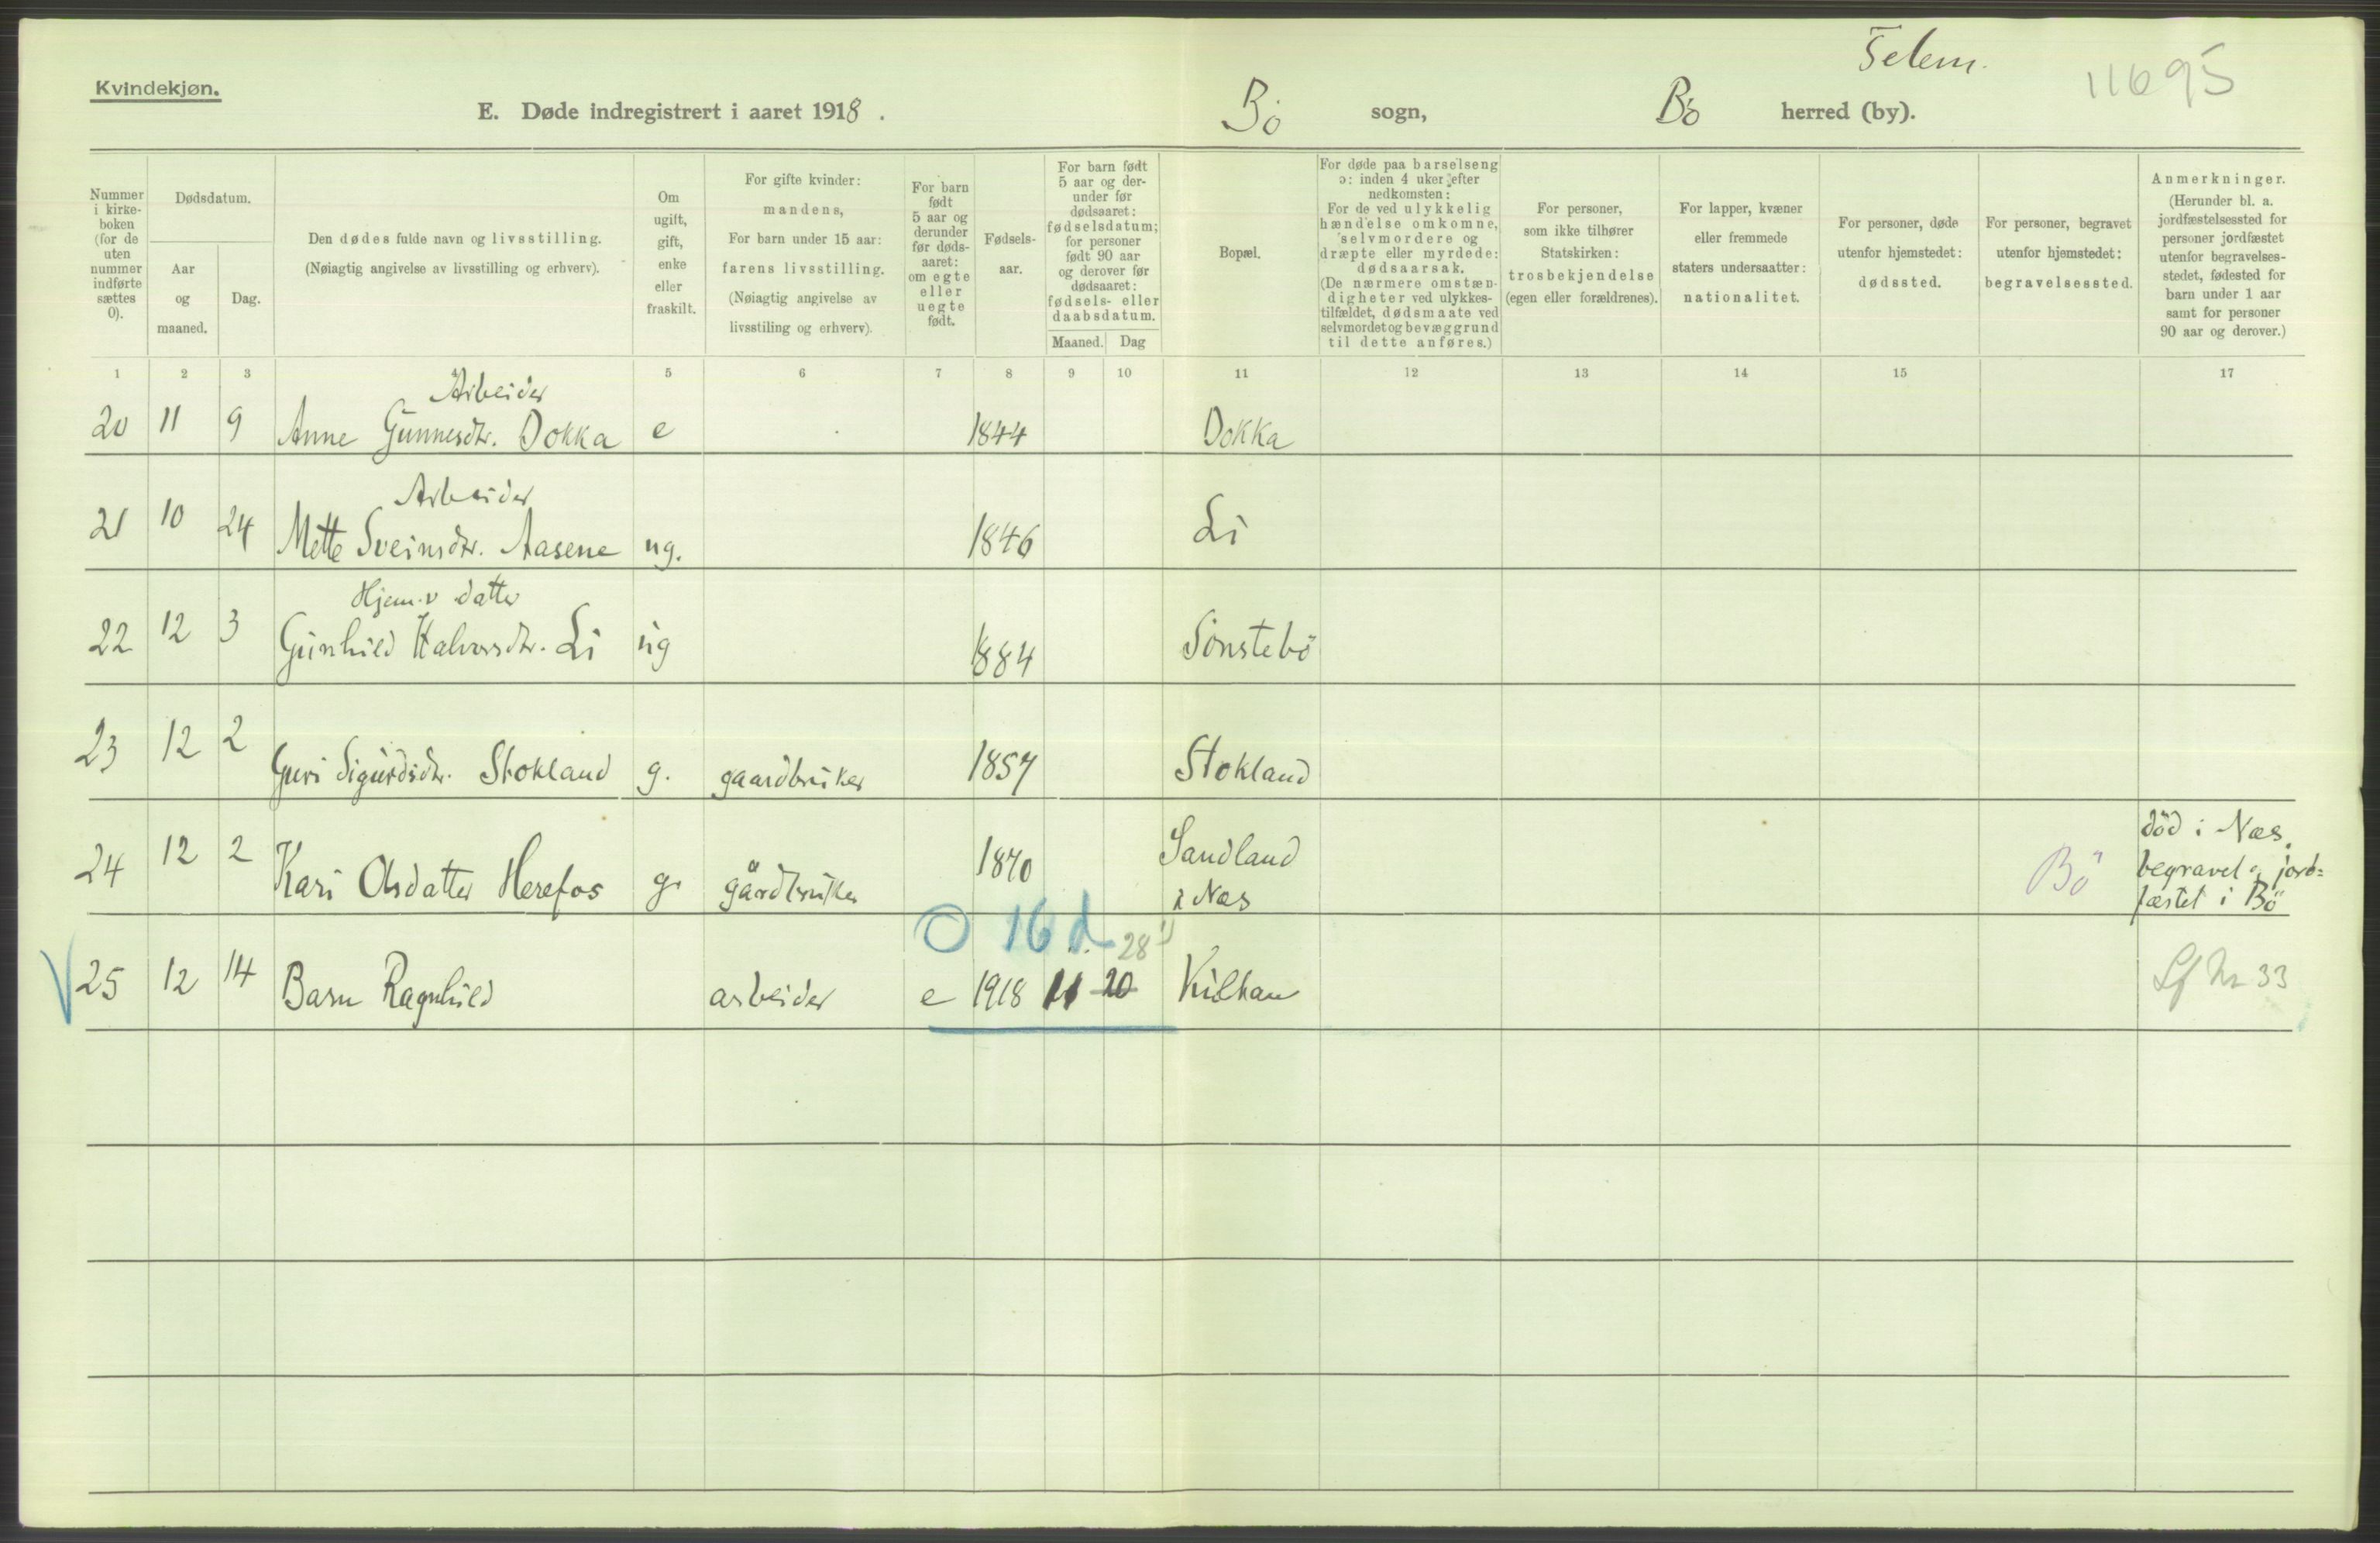 Telem.
11695
Kvindekjøn.
E. Døde indregistrert i aaret 1918. Bö sogn, Bö herred (by).
Nummer i kirke- boken (for de uten nummer indførte sættes 0).
Dødsdatum.
Aar og maaned.
Dag.
Den dødes fulde navn og livsstilling.
(Nøiagtig angivelse av livsstilling og erhverv).
Om ugift, gift, enke eller fraskilt.
For gifte kvinder: mandens,
For barn under 15 aar: farens livsstilling.
(Nøiagtig angivelse av livsstiling og erhverv).
For barn født 5 aar og derunder før døds- aaret: om egte eller uegte født.
Fødsels- aar.
For barn født 5 aar og der- under før dødsaaret: fødselsdatum; for personer født 90 aar og derover før dødsaaret: fødsels- eller daabsdatum.
Maaned. Dag
Bopæl.
For døde paa barselseng ɔ: inden 4 uker efter nedkomsten:
For de ved ulykkelig hændelse omkomne, selvmordere og dræpte eller myrdede: dødsaarsak.
(De nærmere omstæn- digheter ved ulykkes- tilfældet, dødsmaate ved selvmordet og bevæggrund til dette anføres.)
For personer, som ikke tilhører Statskirken: trosbekjendelse (egen eller forældrenes).
For lapper, kvæner eller fremmede staters undersaatter: nationalitet.
For personer, døde utenfor hjemstedet: dødssted.
For personer, begravet utenfor hjemstedet: begravelsessted.
Anmerkninger.
(Herunder bl. a. jordfæstelsessted for personer jordfæstet utenfor begravelses- stedet, fødested for barn under 1 aar samt for personer 90 aar og derover.)
1 2 3 5 6 7 8 9 10 11 12 13 14 15 17
Arbeider
20 11 9 Anne Gunnesdtr. Dokka e 1844 Dokka
Arbeider
21 10 24 Mette Sveinsdtr. Aasene ug. 1846 Li
Hjem.v datter
22 12 3 Gunhild Halvorsdtr. Li ug 1884 Sönstebö
23 12 2 Guri Sigurdsdtr. Stokland g. gaardbruker 1857 Stokland
24 12 2 Kari Olsdatter Herefos g. gårdbruker 1870 Sandland
i Næs
Bö
död i Næs,
begravet og jord=
fæstet i Bö
O 16 d. 28 1)
V 25 12 14 Barn Ragnhild arbeider e 1918 11 20
Lf Nr 33